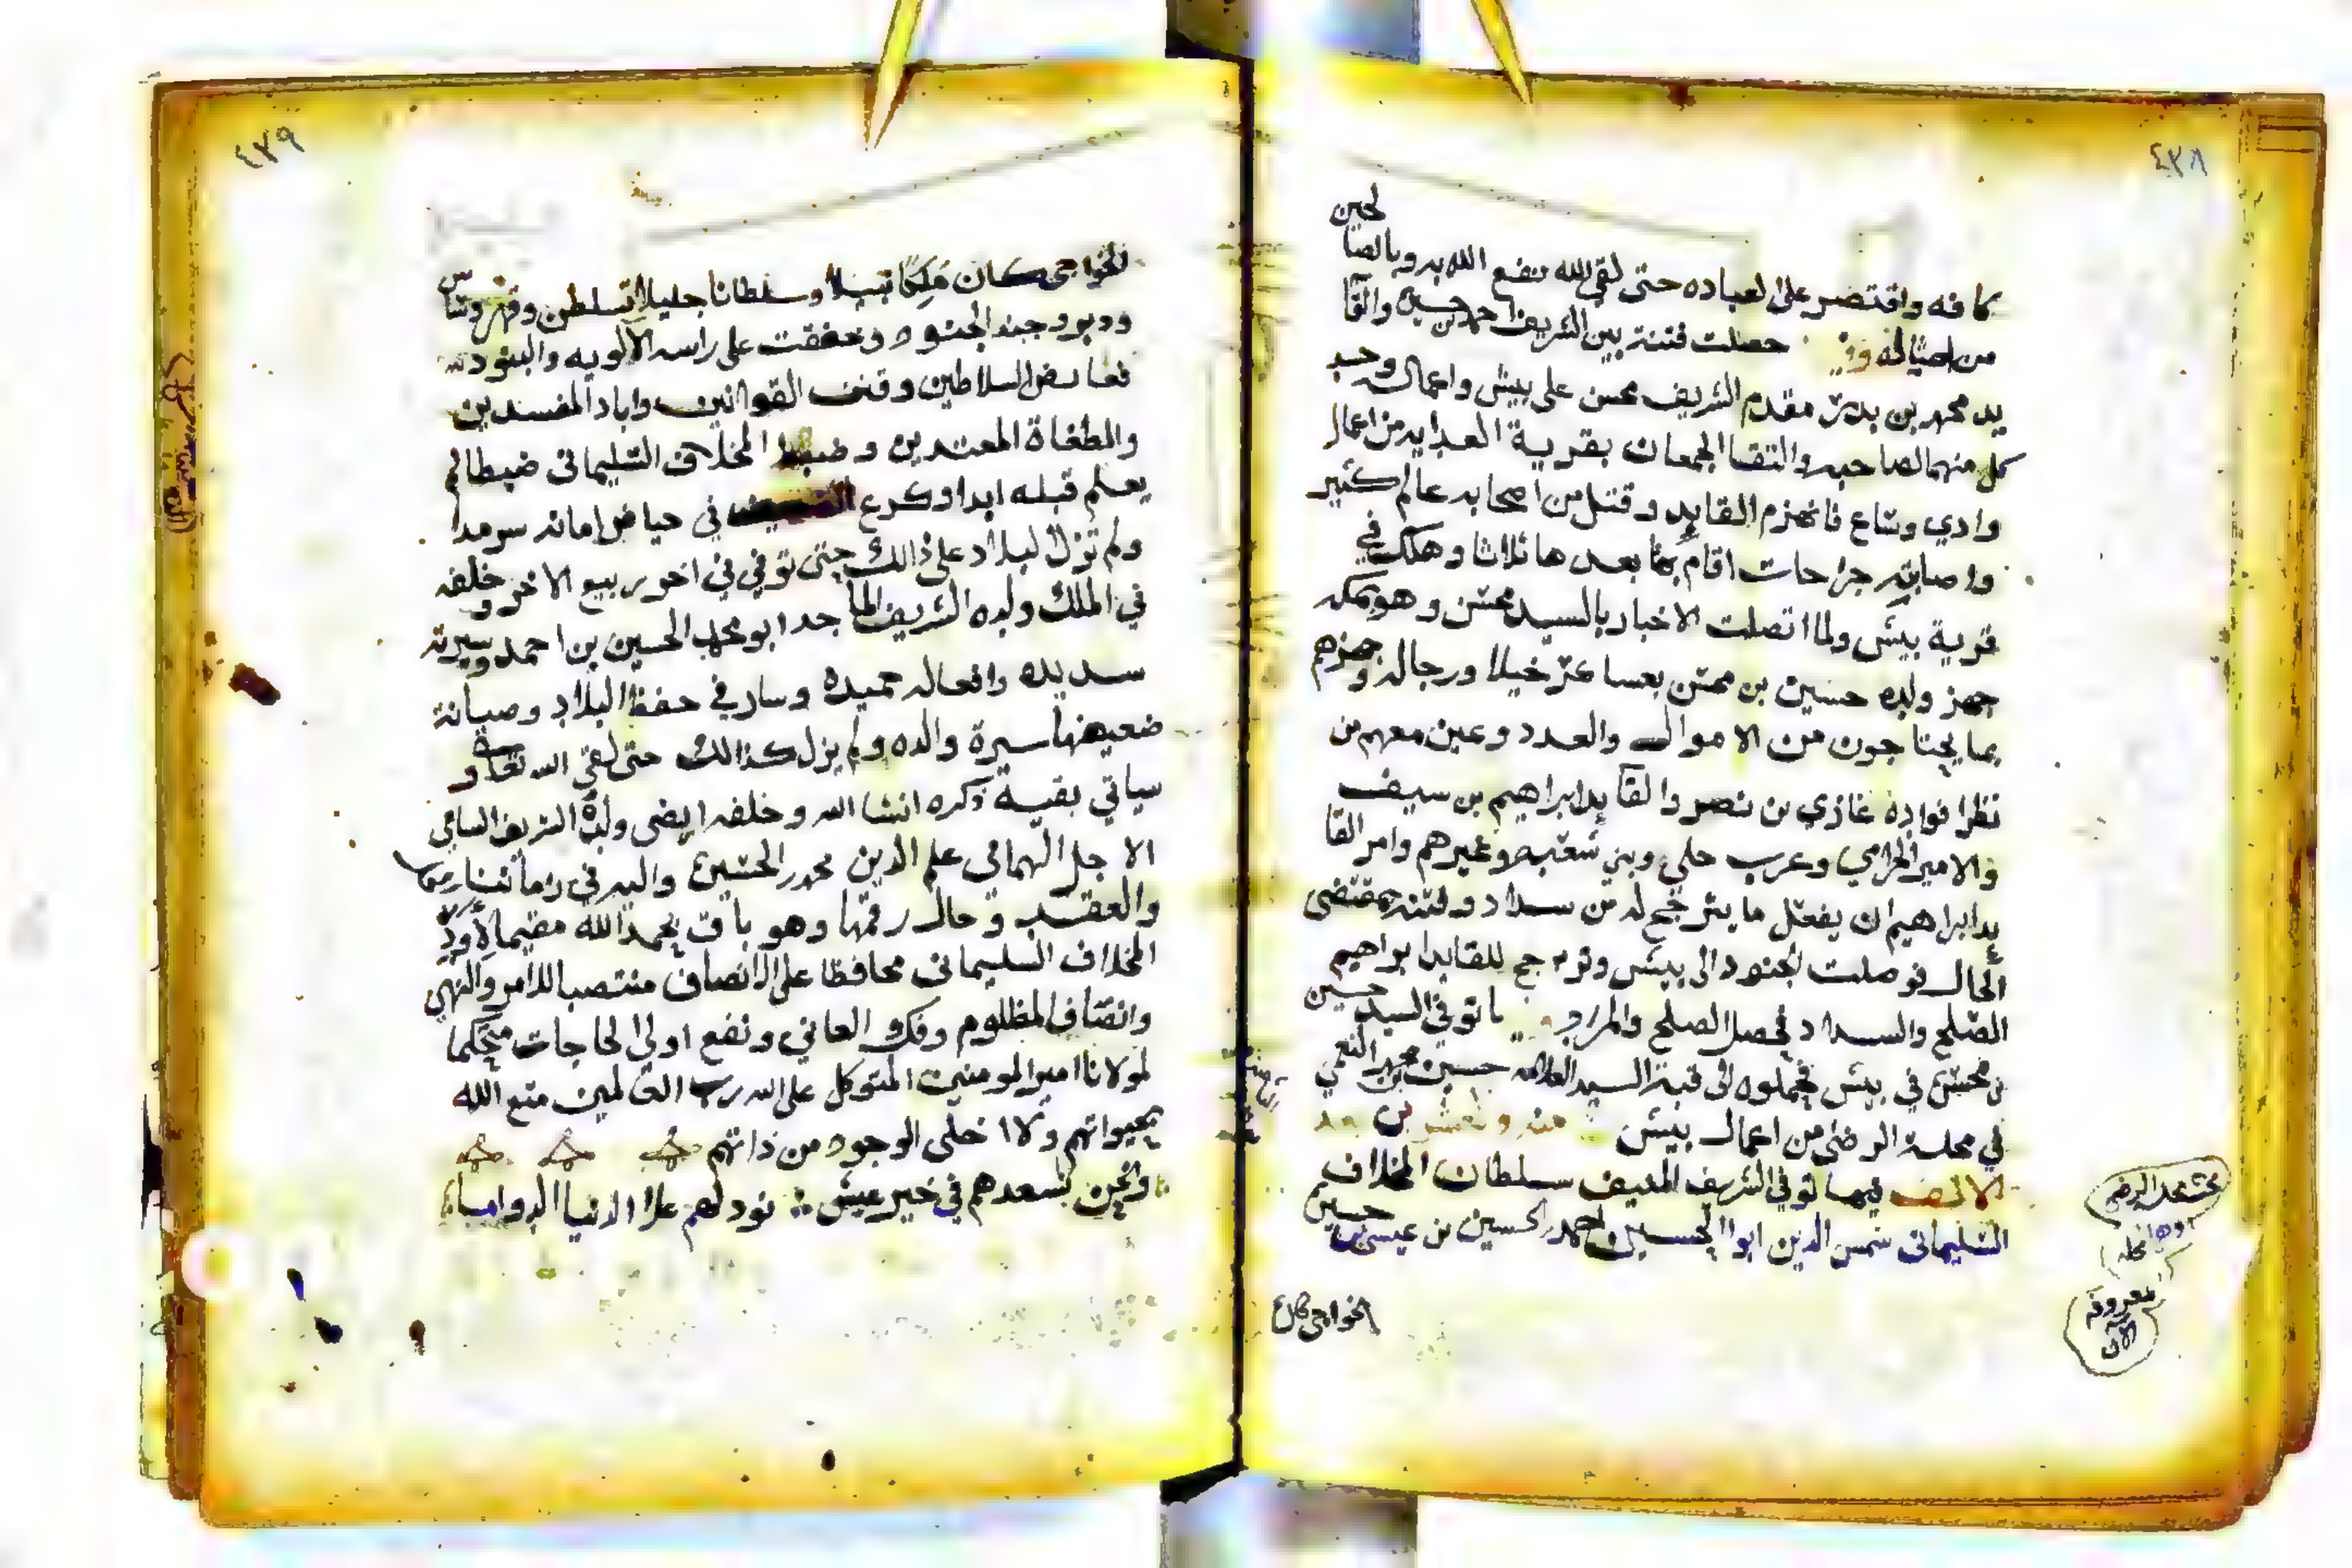 ٤٣٨
كافه واقتصر على لعباده حتى لقي الله نفع الله به وبالصا لحين
من امثاله حصلت فتنة بين الشريف احمد بن حسين والقا
يد محمد بن بدر مقدم الشريف محسن على بيش واعماله وحسد
كل منهما لصاحبه والتقا الجمعان بقرية العدايه من اعمال
وادي وساع فانهزم القايد وقتل من اصحابه عالم كثير
واصابته جراحات اقام بها بعدها ثلاثا وهلك في
قرية بيش ولما اتصلت الاخبار بالسيد محسن وهو بمكه
جهز ولده حسين بن محسن بعساكر خيلا ورجالا وجهزهم
بما يحتاجون من الاموال والعدد وعين معهم من
نظرا فواده غازي بن نصر والقايد ابراهيم بن سيف
والامير الحرامي وعرب حلي وبني شعبه وغيرهم وامر القا
يد ابراهيم ان يفعل ما يترجح له من سداد وفتنه بمقتضى
الحال فوصلت الجنود الى بيش وترجح للقايد ابراهيم
الصلح والسداد فحصل الصلح والمراد توفي السيد حسين
بن محسن في بيش فحملوه الى قبة السيد العلامه حسين بن محمد النعمي
في محلة الرضى من اعمال بيش وعشرين بعد
الالف فيها توفي الشريف المنيف سلطان المخلاف
السليماني شمس الدين ابوا الحسين احمد بن الحسين بن عيسى بن حسين
الخواجي كان
محلة
معروفه
الان
٤٣٩
الخواجي كان ملكا نبيلا وسلطانا جليلا تسلطن وقهر وساس
ودبر وجند الجنود وخفقت على راسه الالويه والبنود
فعارض السلاطين وقنن القوانين واباد المفسدين
والطغاة المعتدين وضبط المخلاف السليماني ضبطا لم
يعلم قبله ابدا وكرع في حياض امانه سرمدا
ولم تزل لبلاد على ذالك حتى توفي في اخر ربيع الاخر وخلفه
في الملك ولده الشريف الماجد ابو محمد الحسين بن احمد وسيرته
سديده وافعاله حميده وسار في حفظ البلاد وصيانة
ضعيفها سيرة والده ولم يزل كذالك حتى لقي الله تعالى و
سياتي بقية ذكره انشا الله وخلفه ايضى ولده الشريف السامي
الاجل الهمامي علم الدين محمد بن الحسين واليه في زماننا
والعقد وحال رقمها وهو باق بحمد الله مقيما
المخلاف السليماني محافظا على الانصاف منتصبا للامر والنهي
وانصاف المظلوم وفك العاني ونفع اولي الحاجات محكما
لمولانا امير المومنين المتوكل على الله رب العالمين متع الله
بحيواتهم ولا اخلى الوجود من ذاتهم
ونحن لسعدهم في خير عيش نود لهم على الدنيا الدواما